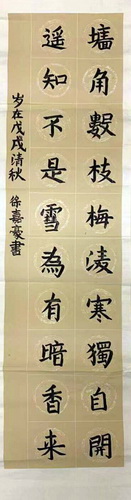 墻角數枝梅凌寒獨自開
遥知不是雪為有暗香来
岁在戊戌清秋 徐嘉豪書